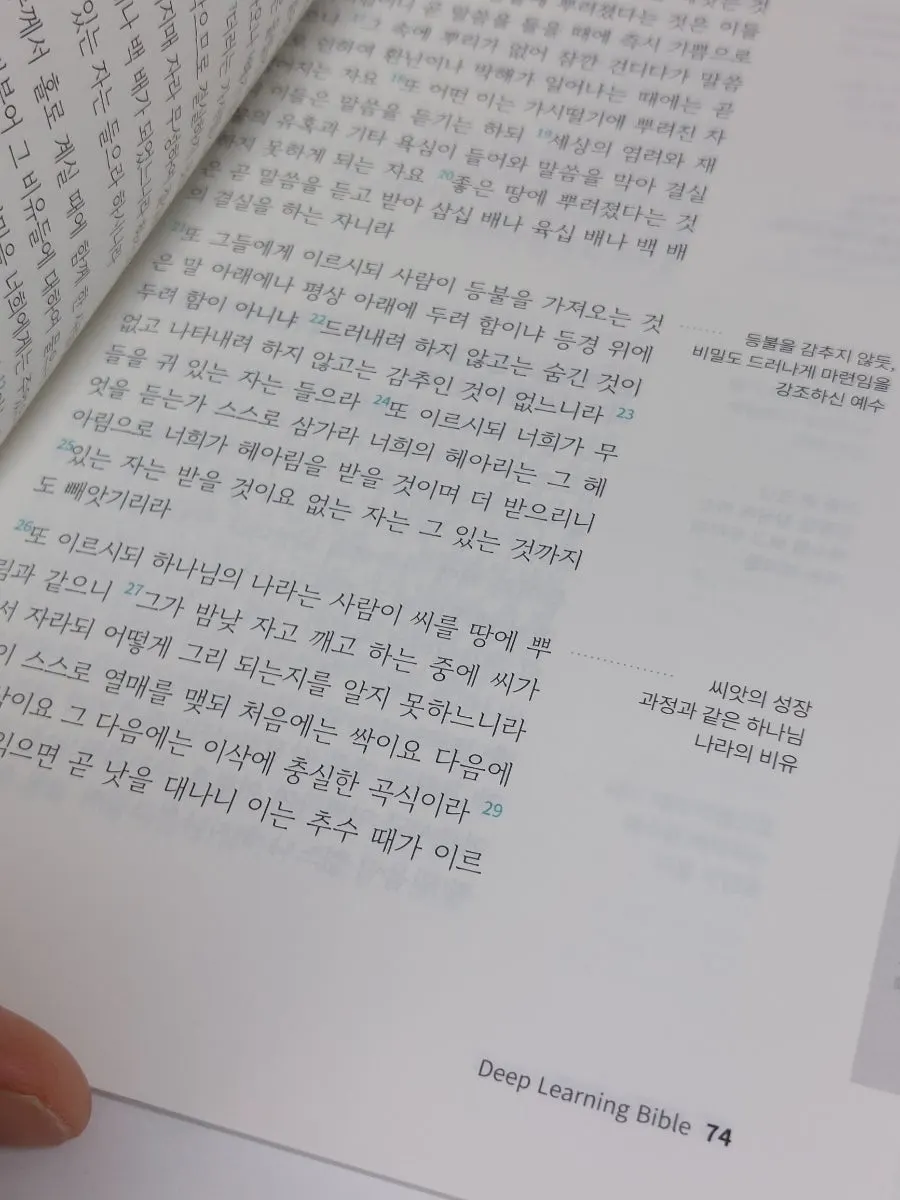 뿌려졌다는 것은 이들
말씀을 들을 때에 즉시 기쁨으로
그 속에 뿌리가 없어 잠깐 견디다가 말씀
인하여 환난이나 박해가 일어나는 때에는 곧
지는 자요 18또 어떤 이는 가시떨기에 뿌려진 자
이들은 말씀을 듣기는 하되 19세상의 염려와 재
의 유혹과 기타 욕심이 들어와 말씀을 막아 결실
하지 못하게 되는 자요 20좋은 땅에 뿌려졌다는 것
은 곧 말씀을 듣고 받아 삼십 배나 육십 배나 백 배
의 결실을 하는 자니라
21또 그들에게 이르시되 사람이 등불을 가져오는 것
은 말 아래에나 평상 아래에 두려 함이냐 등경 위에
두려 함이 아니냐 22드러내려 하지 않고는 숨긴 것이
없고 나타내려 하지 않고는 감추인 것이 없느니라 23
들을 귀 있는 자는 들으라 24또 이르시되 너희가 무
엇을 듣는가 스스로 삼가라 너희의 헤아리는 그 헤
아림으로 너희가 헤아림을 받을 것이며 더 받으리니
25있는 자는 받을 것이요 없는 자는 그 있는 것까지
도 빼앗기리라
26또 이르시되 하나님의 나라는 사람이 씨를 땅에 뿌
림과 같으니 27그가 밤낮 자고 깨고 하는 중에 씨가
서 자라되 어떻게 그리 되는지를 알지 못하느니라
이 스스로 열매를 맺되 처음에는 싹이요 다음에
이요 그 다음에는 이삭에 충실한 곡식이라 29
익으면 곧 낫을 대나니 이는 추수 때가 이르
등불을 감추지 않듯,
비밀도 드러나게 마련임을
강조하신 예수
씨앗의 성장
과정과 같은 하나님
나라의 비유
Deep Learning Bible 74